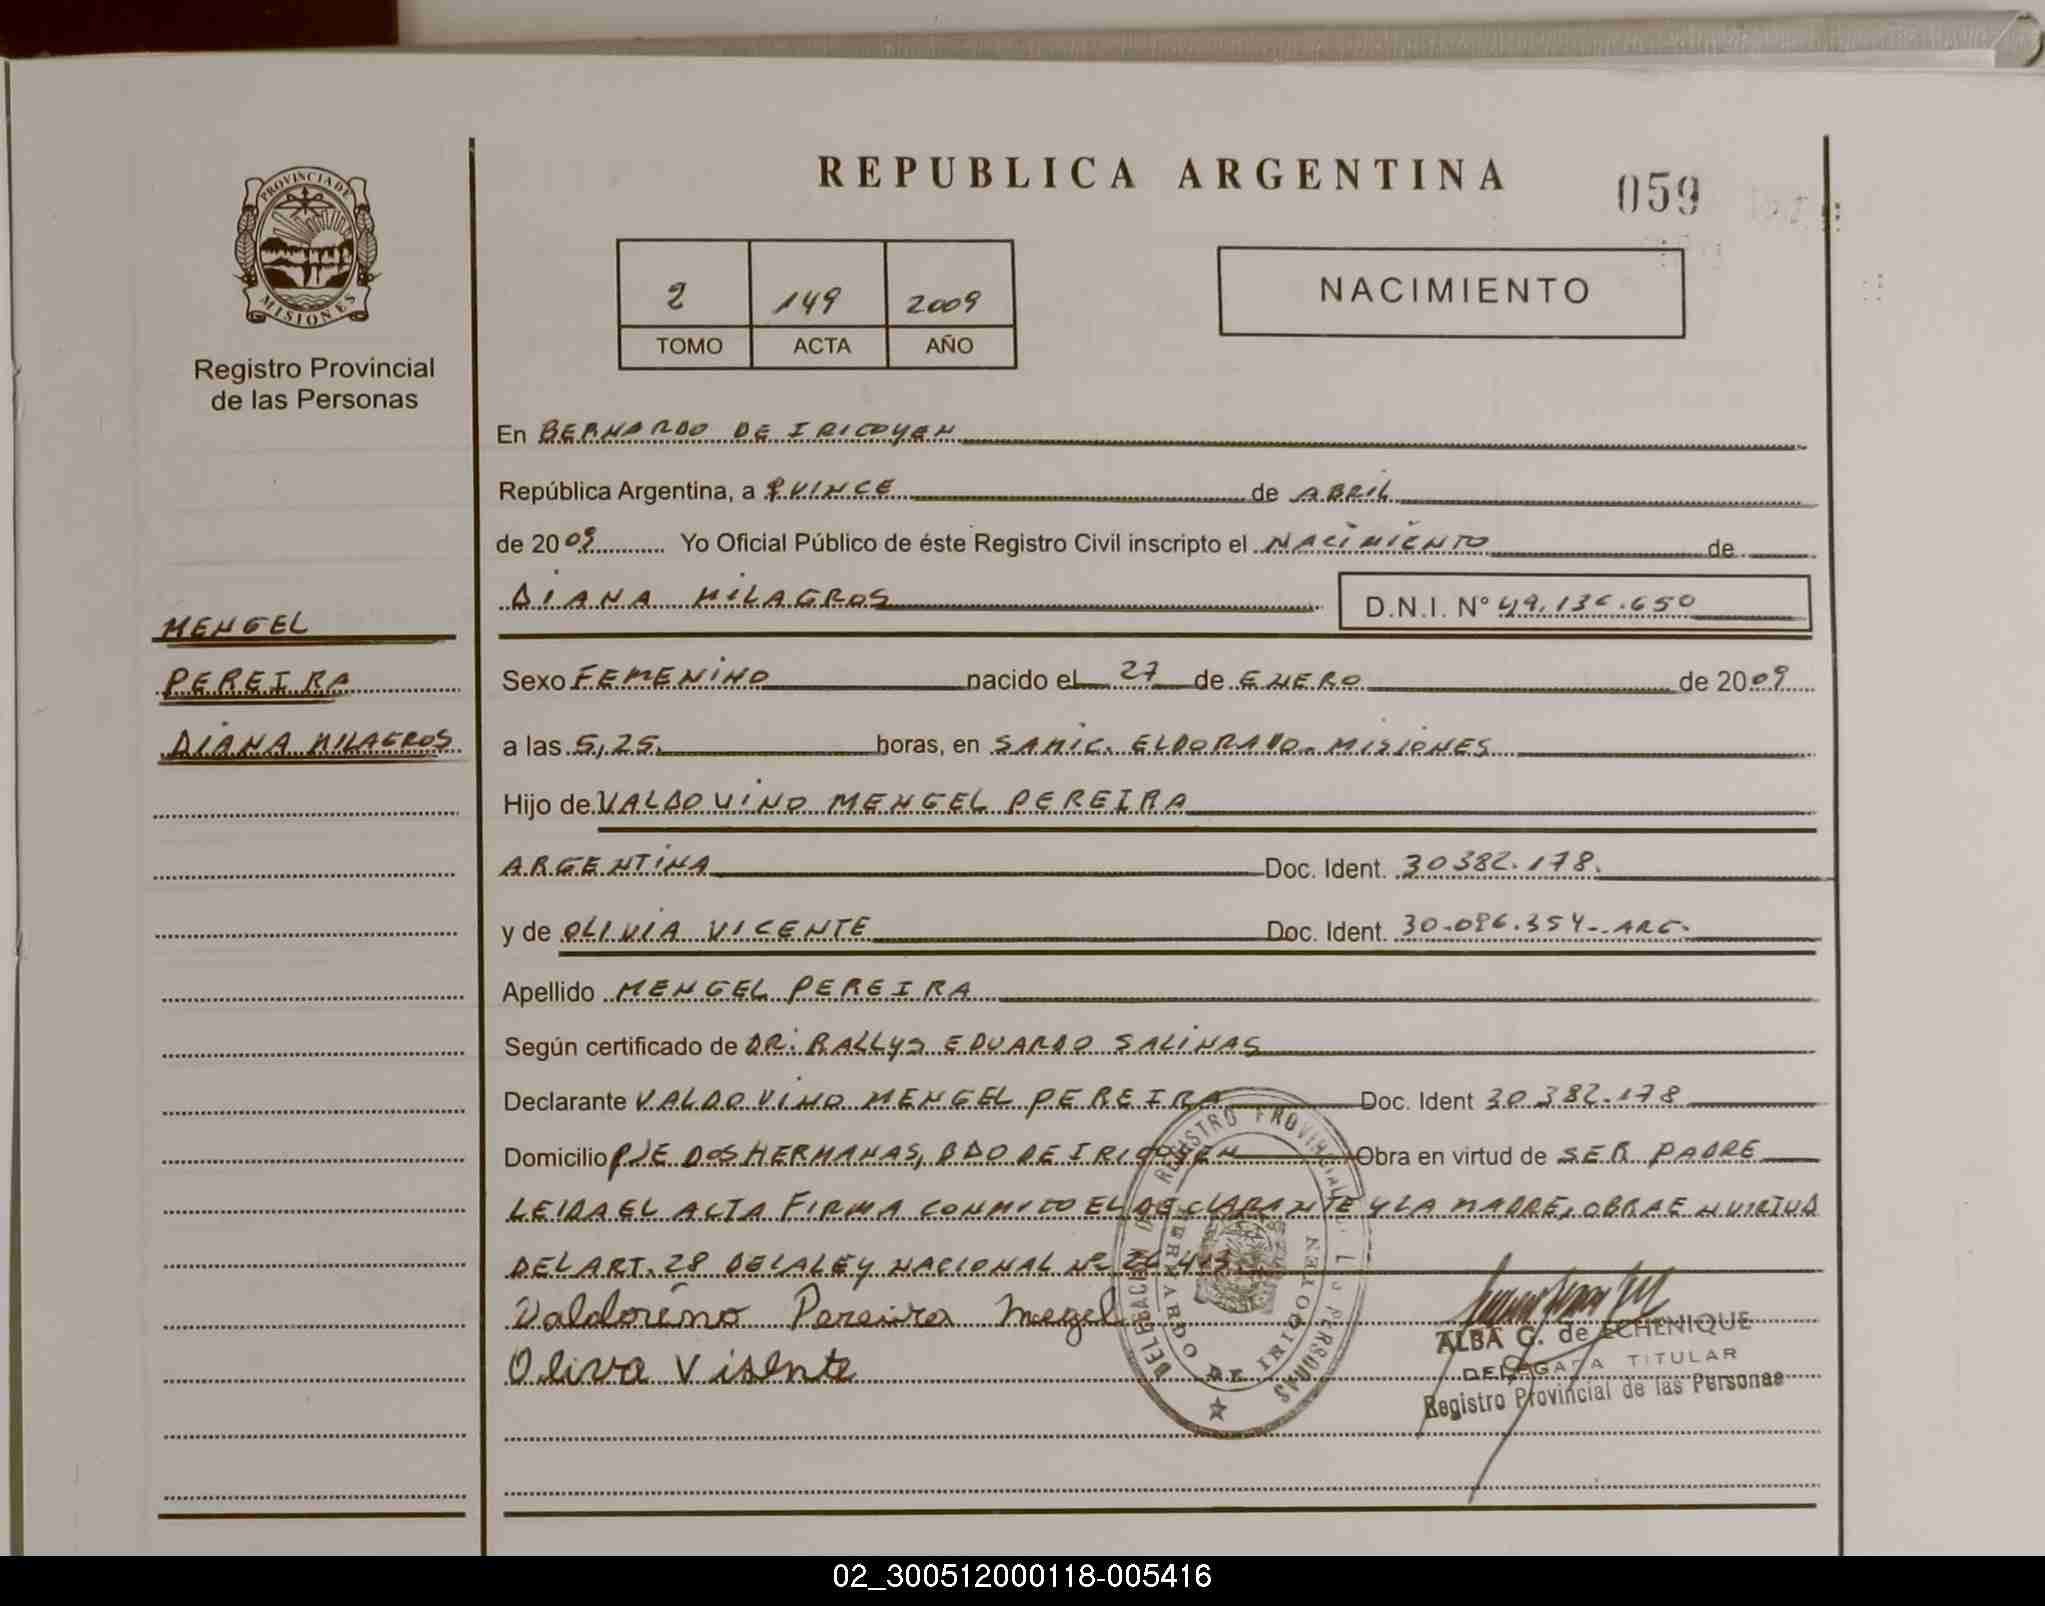 REPUBLICA ARGENTINA
059
PROVINCIA DE MISIONES
Registro Provincial
de las Personas
2 149 2009
TOMO ACTA AÑO
NACIMIENTO
En BERNARDO DE IRIGOYEN
República Argentina, a QUINCE de ABRIL
de 2009 Yo Oficial Público de éste Registro Civil inscripto el NACIMIENTO de
DIANA MILAGROS D.N.I. N° 49.136.650
MENGEL
PEREIRA
DIANA MILAGROS
Sexo FEMENINO nacido el 27 de ENERO de 2009
a las 5,25. horas, en SAMIC. ELDORADO. MISIONES
Hijo de VALDOVINO MENGEL PEREIRA
ARGENTINA Doc. Ident. 30382.178.
y de OLIVIA VICENTE Doc. Ident. 30.096.354-ARG.
Apellido MENGEL PEREIRA
Según certificado de DR. RALLYS EDUARDO SALINAS
Declarante VALDOVINO MENGEL PEREIRA Doc. Ident 30.382.178
Domicilio PJE DOS HERMANAS, BDO DE IRIGOYEN Obra en virtud de SER PADRE
LEIDA EL ACTA FIRMA CONMIGO EL DECLARANTE Y LA MADRE, OBRA EN VIRTUD
DEL ART. 28 DE LA LEY NACIONAL Nº 26.413
Valdoreno Pereira Megel
Oliva Visente
DELEGACION DE REGISTRO PROVINCIAL DE LAS PERSONAS
BERNARDO DE IRIGOYEN
ALBA G. de ECHENIQUE
DELEGADA TITULAR
Registro Provincial de las Personas
02_300512000118-005416